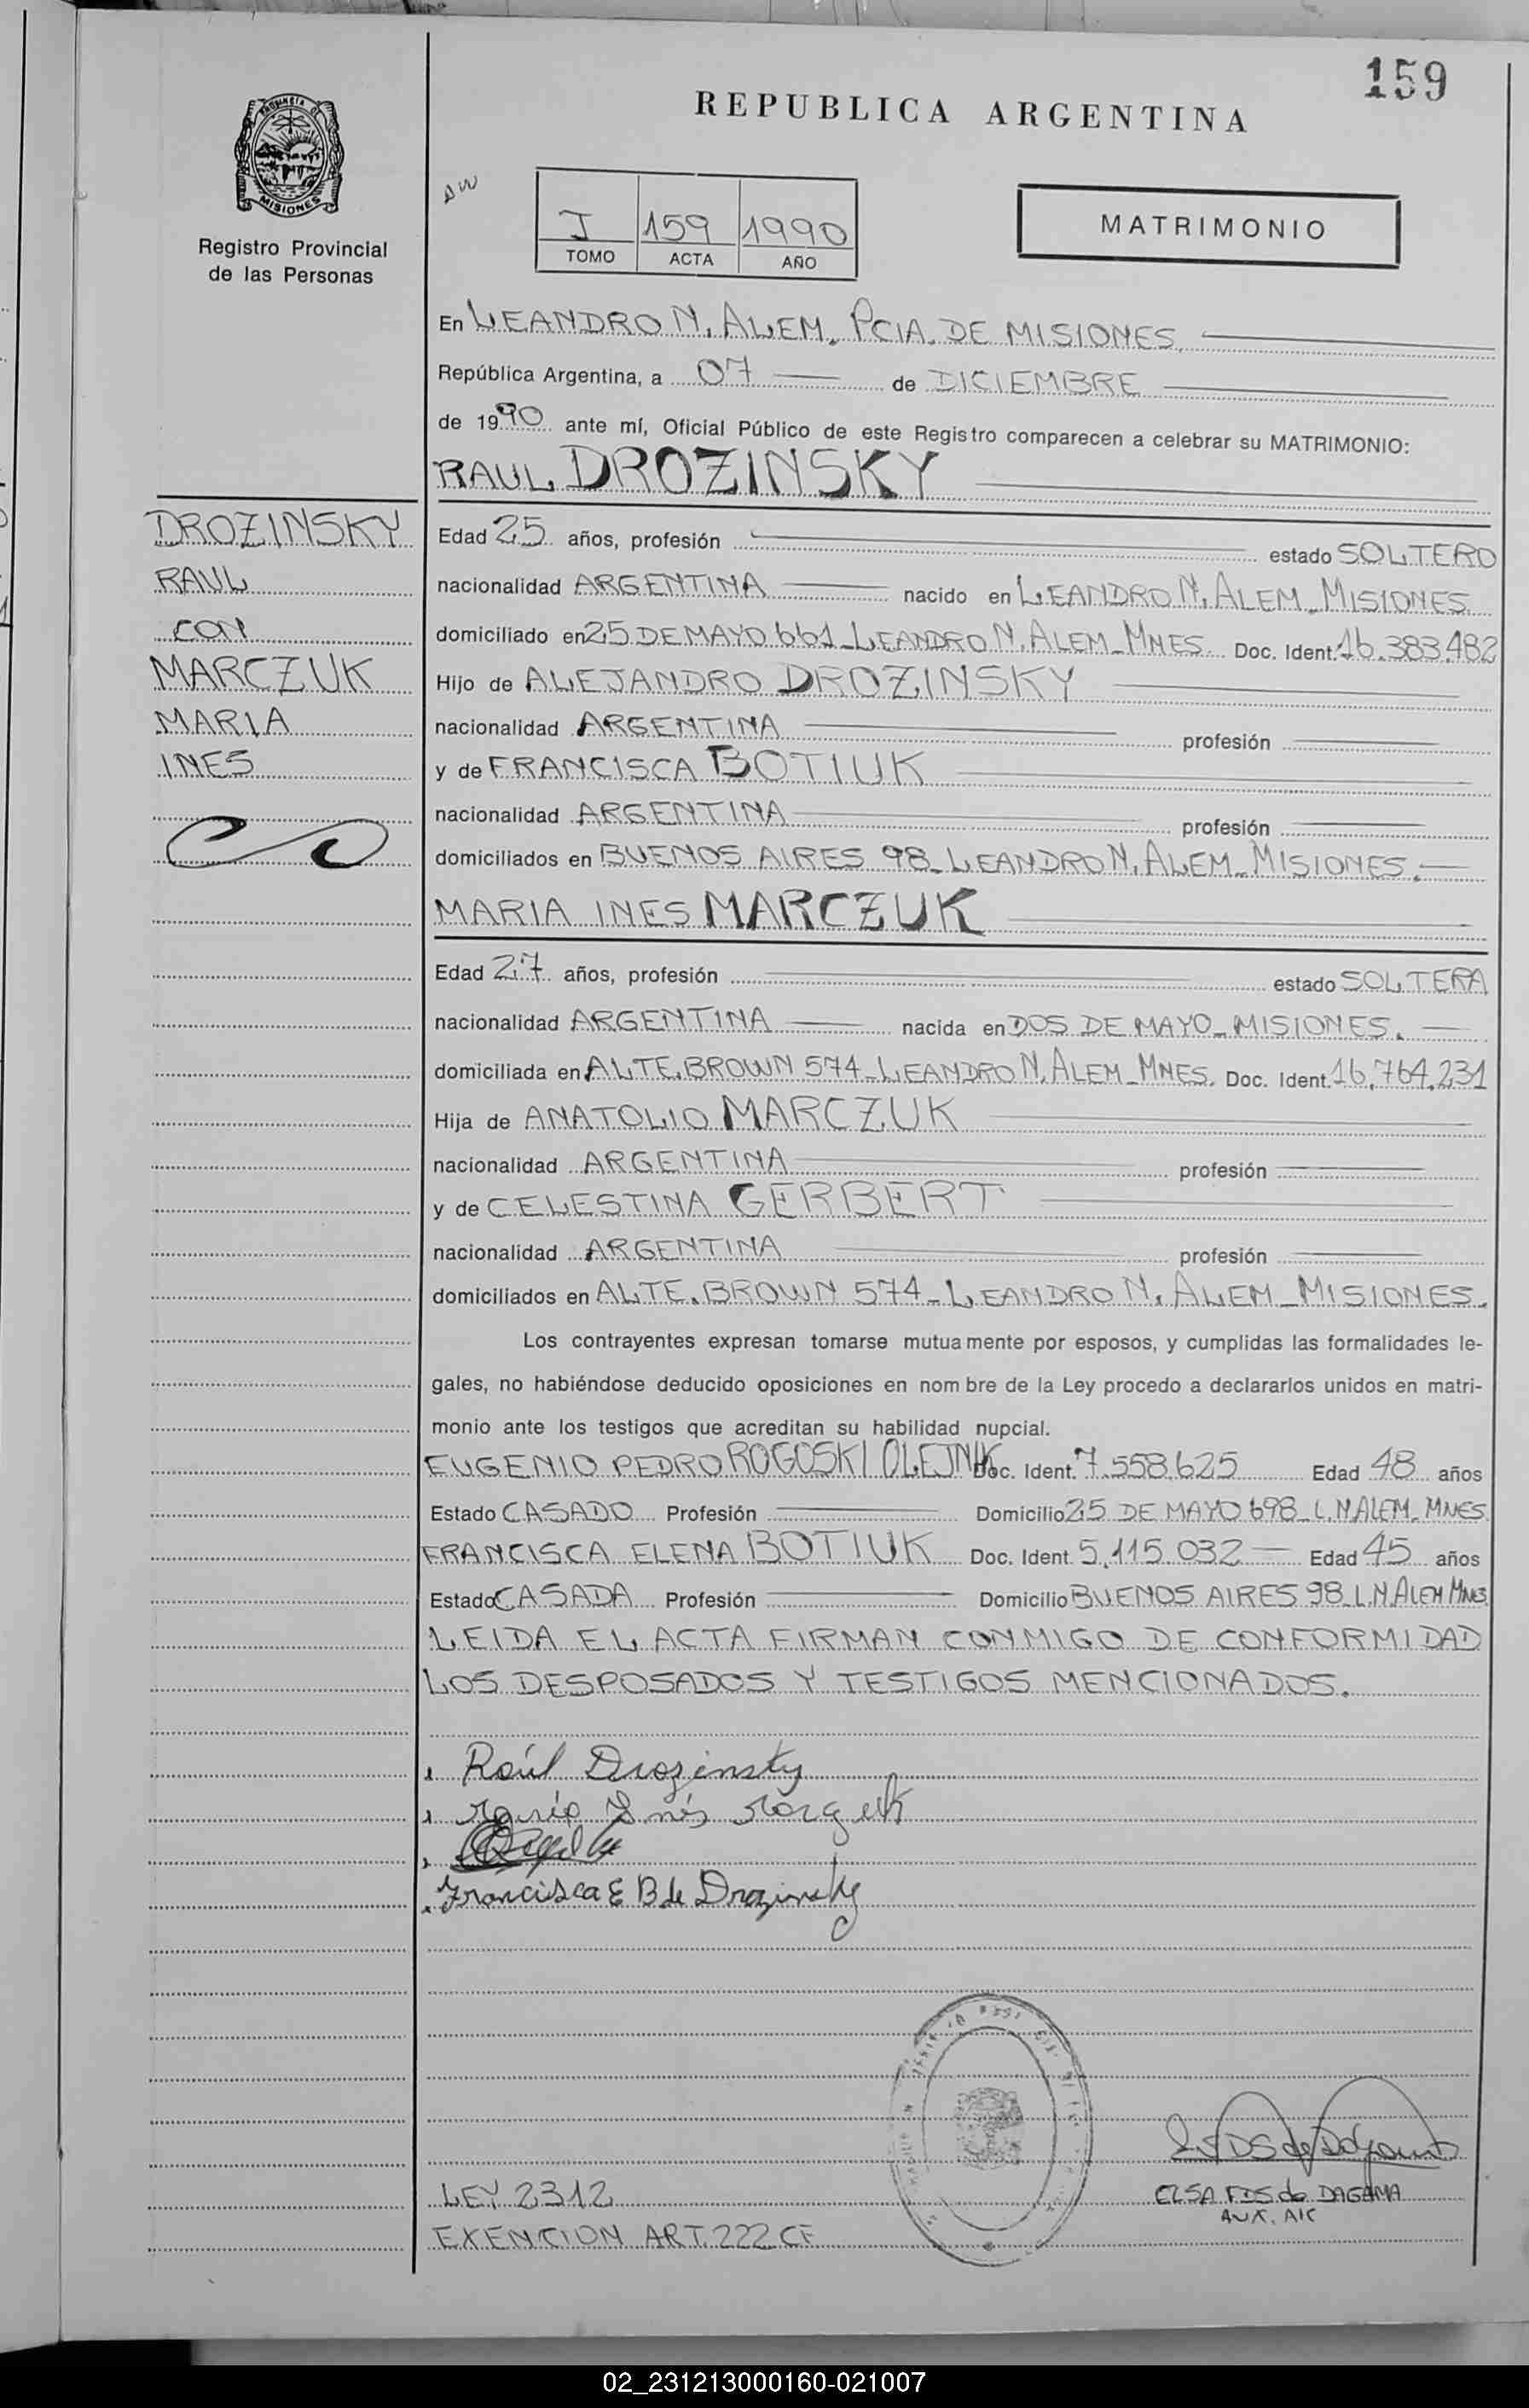 159
REPUBLICA ARGENTINA
PROVINCIA DE
MISIONES
Registro Provincial
de las Personas
I 159 1990
TOMO ACTA AÑO
MATRIMONIO
En LEANDRO N. ALEM. PCIA. DE MISIONES.
República Argentina, a 07 de DICIEMBRE
de 1990 ante mí, Oficial Público de este Registro comparecen a celebrar su MATRIMONIO:
RAUL DROZINSKY
DROZINSKY
RAUL
CON
MARCZUK
MARIA
INES
Edad 25 años, profesión estado SOLTERO
nacionalidad ARGENTINA nacido en LEANDRO N. ALEM_MISIONES
domiciliado en 25 DE MAYO 661_LEANDRO N. ALEM_MNES. Doc. Ident. 16.383.482
Hijo de ALEJANDRO DROZINSKY
nacionalidad ARGENTINA profesión
y de FRANCISCA BOTIUK
nacionalidad ARGENTINA profesión
domiciliados en BUENOS AIRES 98_LEANDRO N. ALEM_MISIONES.
MARIA INES MARCZUK
Edad 27 años, profesión estado SOLTERA
nacionalidad ARGENTINA nacida en DOS DE MAYO_MISIONES.
domiciliada en ALTE. BROWN 574_LEANDRO N. ALEM_MNES. Doc. Ident. 16.764.231
Hija de ANATOLIO MARCZUK
nacionalidad ARGENTINA profesión
y de CELESTINA GERBERT
nacionalidad ARGENTINA profesión
domiciliados en ALTE. BROWN 574_LEANDRO N. ALEM_MISIONES.
Los contrayentes expresan tomarse mutuamente por esposos, y cumplidas las formalidades le-
gales, no habiéndose deducido oposiciones en nombre de la Ley procedo a declararlos unidos en matri-
monio ante los testigos que acreditan su habilidad nupcial.
EUGENIO PEDRO ROGOSKI OLEJNIK Doc. Ident. 7.558.625 Edad 48 años
Estado CASADO Profesión Domicilio 25 DE MAYO 698_L.N.ALEM_MNES.
FRANCISCA ELENA BOTIUK Doc. Ident. 5.115.032 Edad 45 años
Estado CASADA Profesión Domicilio BUENOS AIRES 98_L.N.ALEM MNES.
LEIDA EL ACTA FIRMAN CONMIGO DE CONFORMIDAD
LOS DESPOSADOS Y TESTIGOS MENCIONADOS.
Raúl Drozinsky
María Inés Marczuk
Francisca E B de Drozinsky
ELSA FDS de DAGAMA
AUX. A/C
LEY 2312
EXENCION ART. 222 CF
02_231213000160-021007